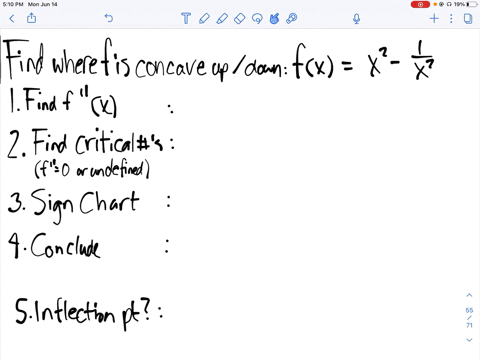 5:10 PM Mon Jun 14
19%
Find where f is concave up/down: f(x) = x² - 1/x²
1. Find f"(x) :
2. Find Critical #'s :
(f"=0 or undefined)
3. Sign Chart :
4. Conclude :
5. Inflection pt? :
55
/
71